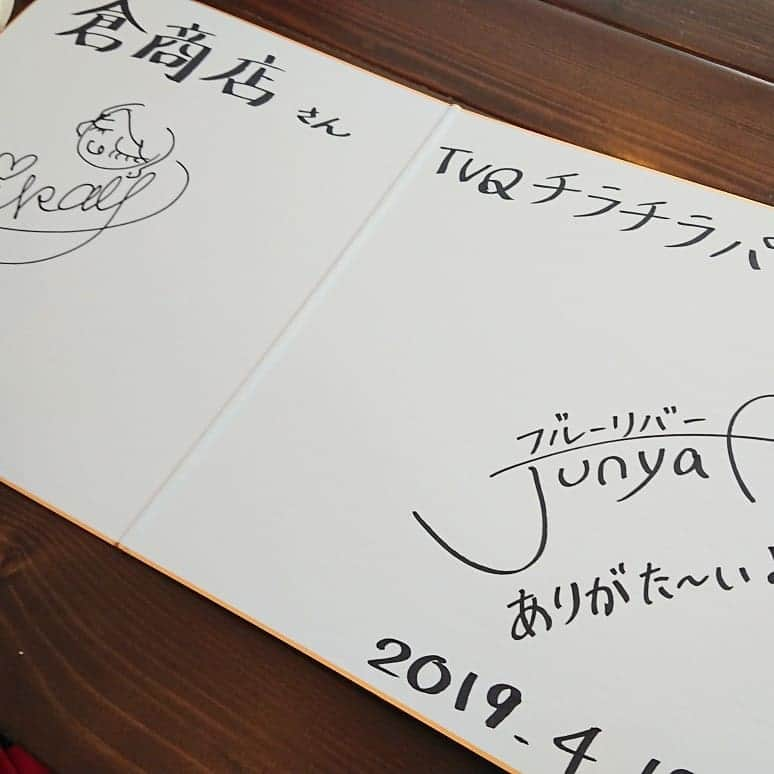 倉商店さん
TVQチラチラパ
ブルーリバー
Junya
ありがた〜いよ
2019.4.1